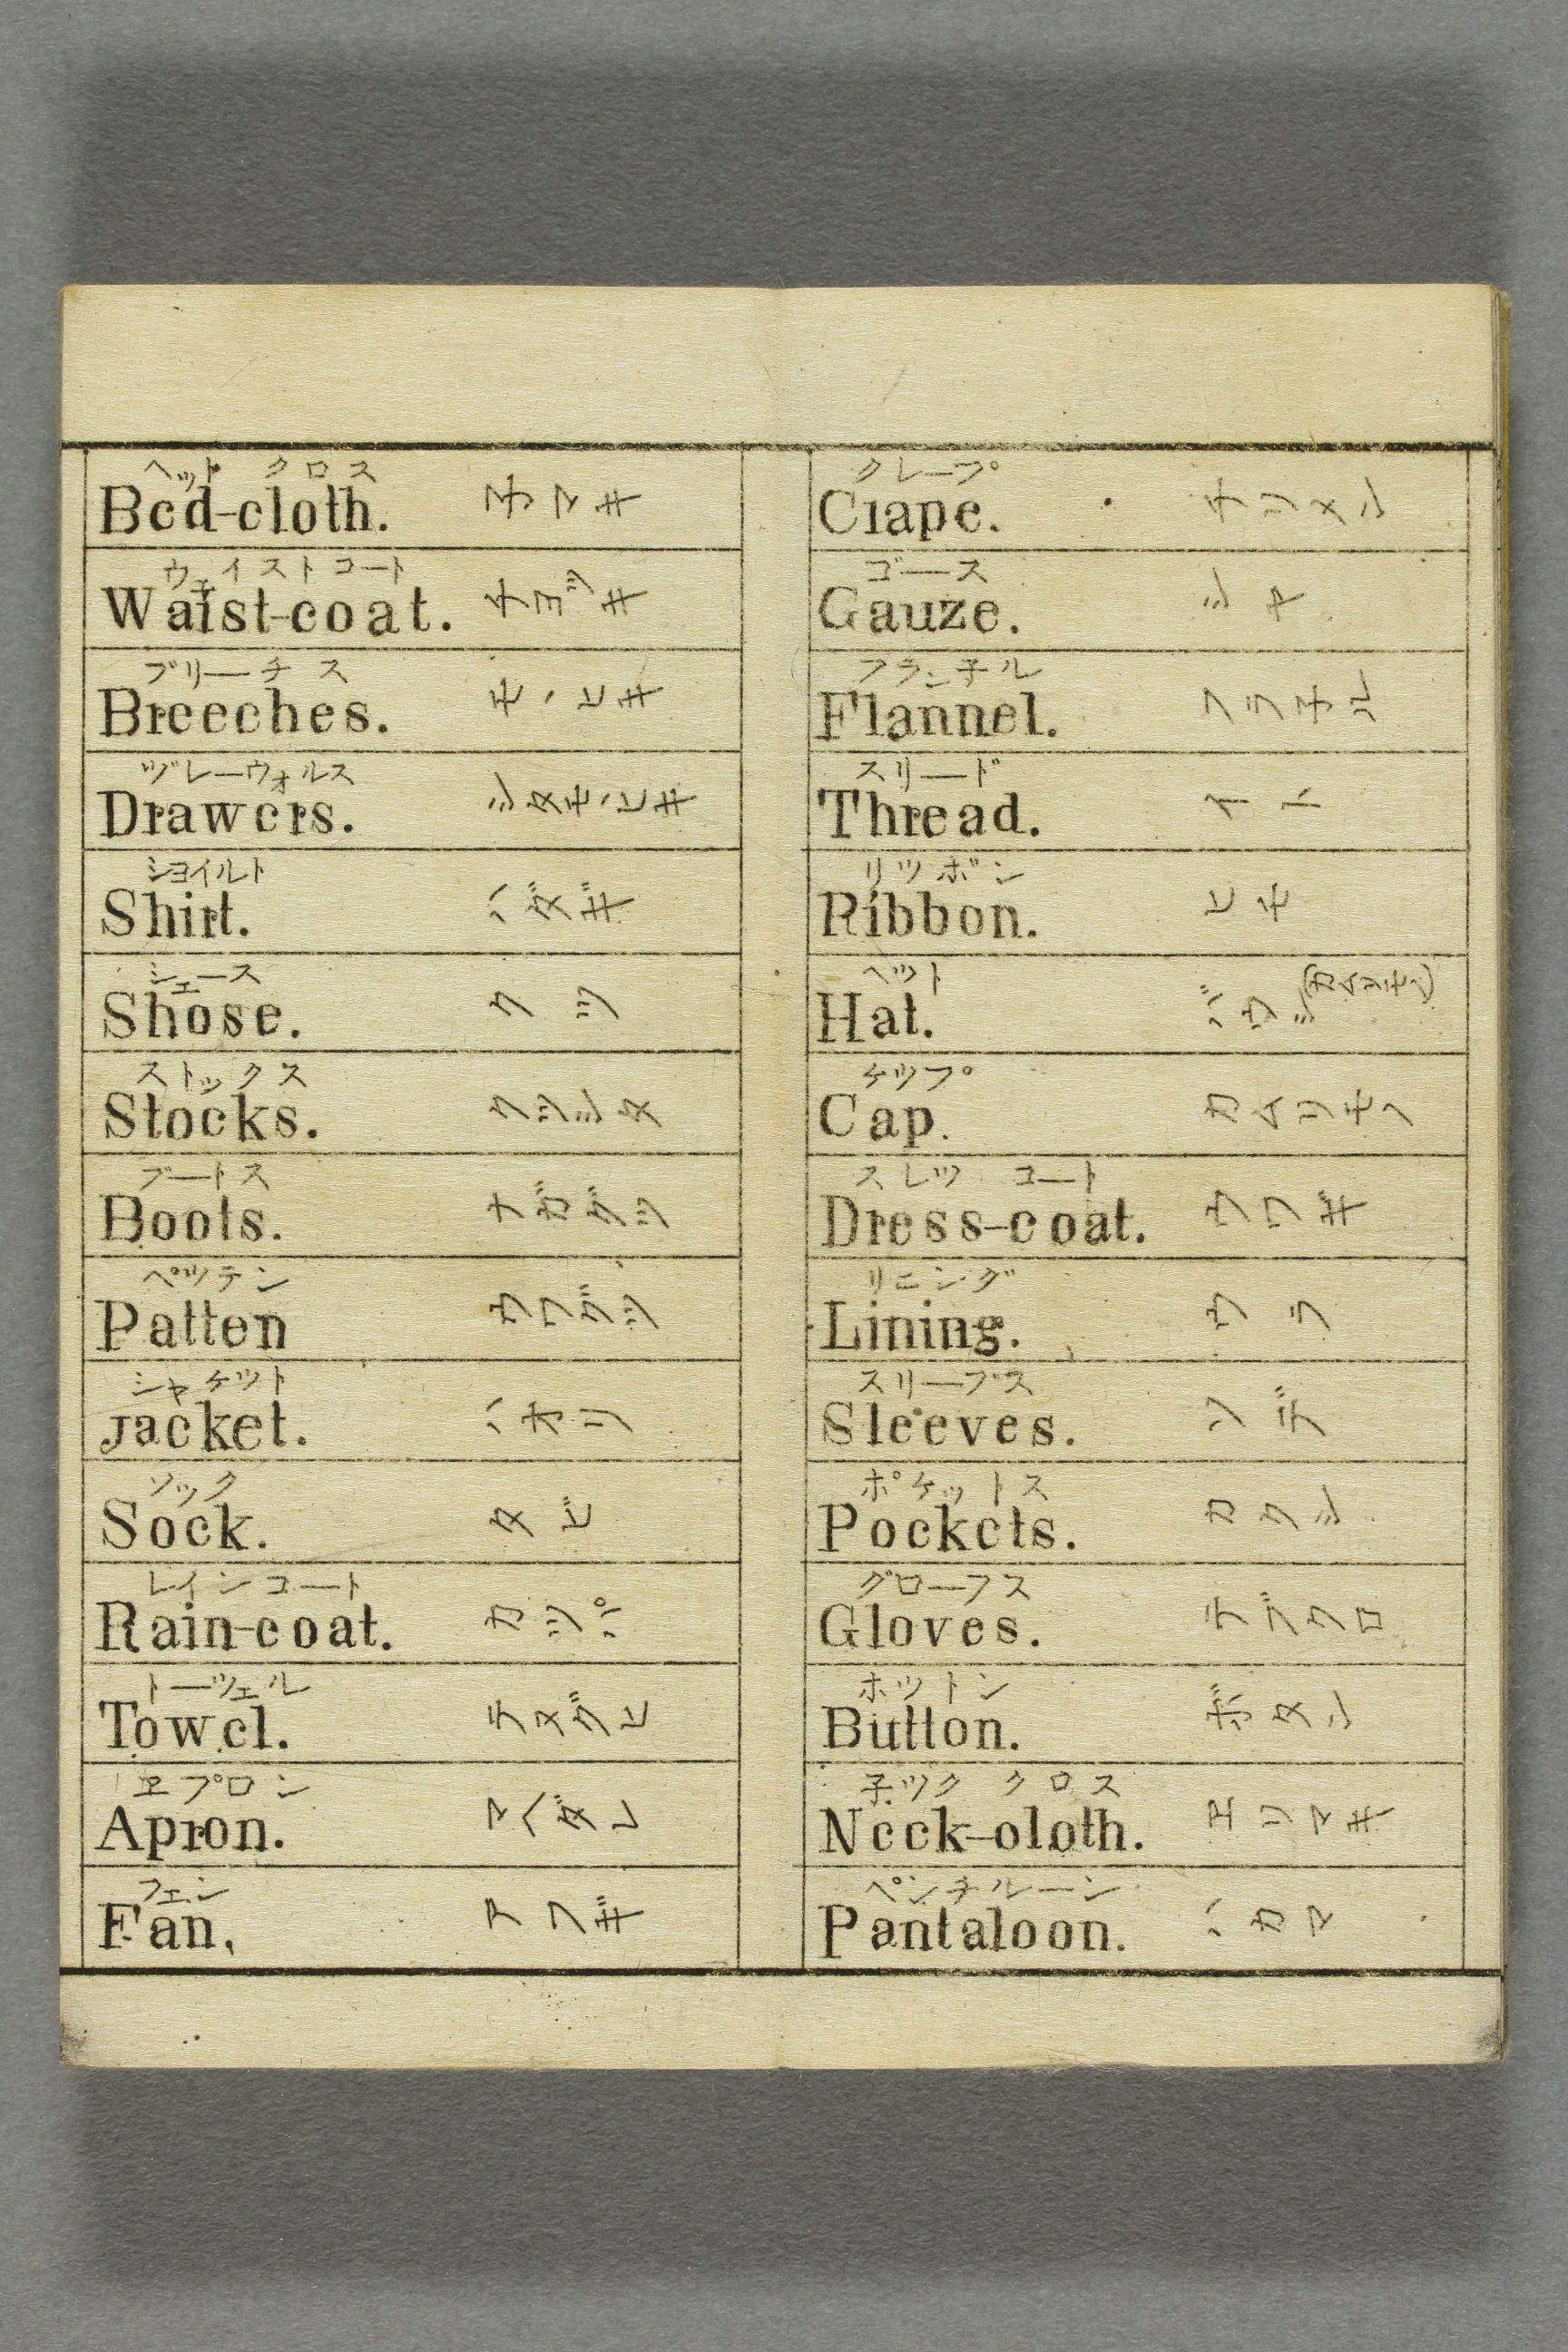 ヘット クロス
Bed-cloth. ネマキ
ウェイストコート
Waist-coat. チヨツキ
ブリーチス
Breeches. モヽヒキ
ヅレーウォルス
Drawers. シタモヽヒキ
ショイルト
Shirt. ハダギ
シェース
Shose. クツ
ストックス
Stocks. クツシタ
ブートス
Boots. ナガグツ
ペツテン
Patten ウワグツ
シャケツト
Jacket. ハオリ
ソック
Sock. タビ
レインコート
Rain-coat. カツパ
トーウェル
Towel. テヌグヒ
ヱプロン
Apron. マヘダレ
フェン
Fan. アフギ
クレープ
Crape. チリメン
ゴース
Gauze. シヤ
フラン子ル
Flannel. フラネル
スリード
Thread. イト
リツボン
Ribbon. ヒモ
ヘツト
Hat. バウシ (カムリモノ)
ケツプ
Cap. カムリモノ
スレツ コート
Dress-coat. ウワギ
リニング
Lining. ウラ
スリーブス
Sleeves. ソデ
ポケットス
Pockets. カクシ
グローフス
Gloves. テブクロ
ホツトン
Button. ボタン
子ツク クロス
Neck-oloth. エリマキ
ペンチルーン
Pantaloon. ハカマ